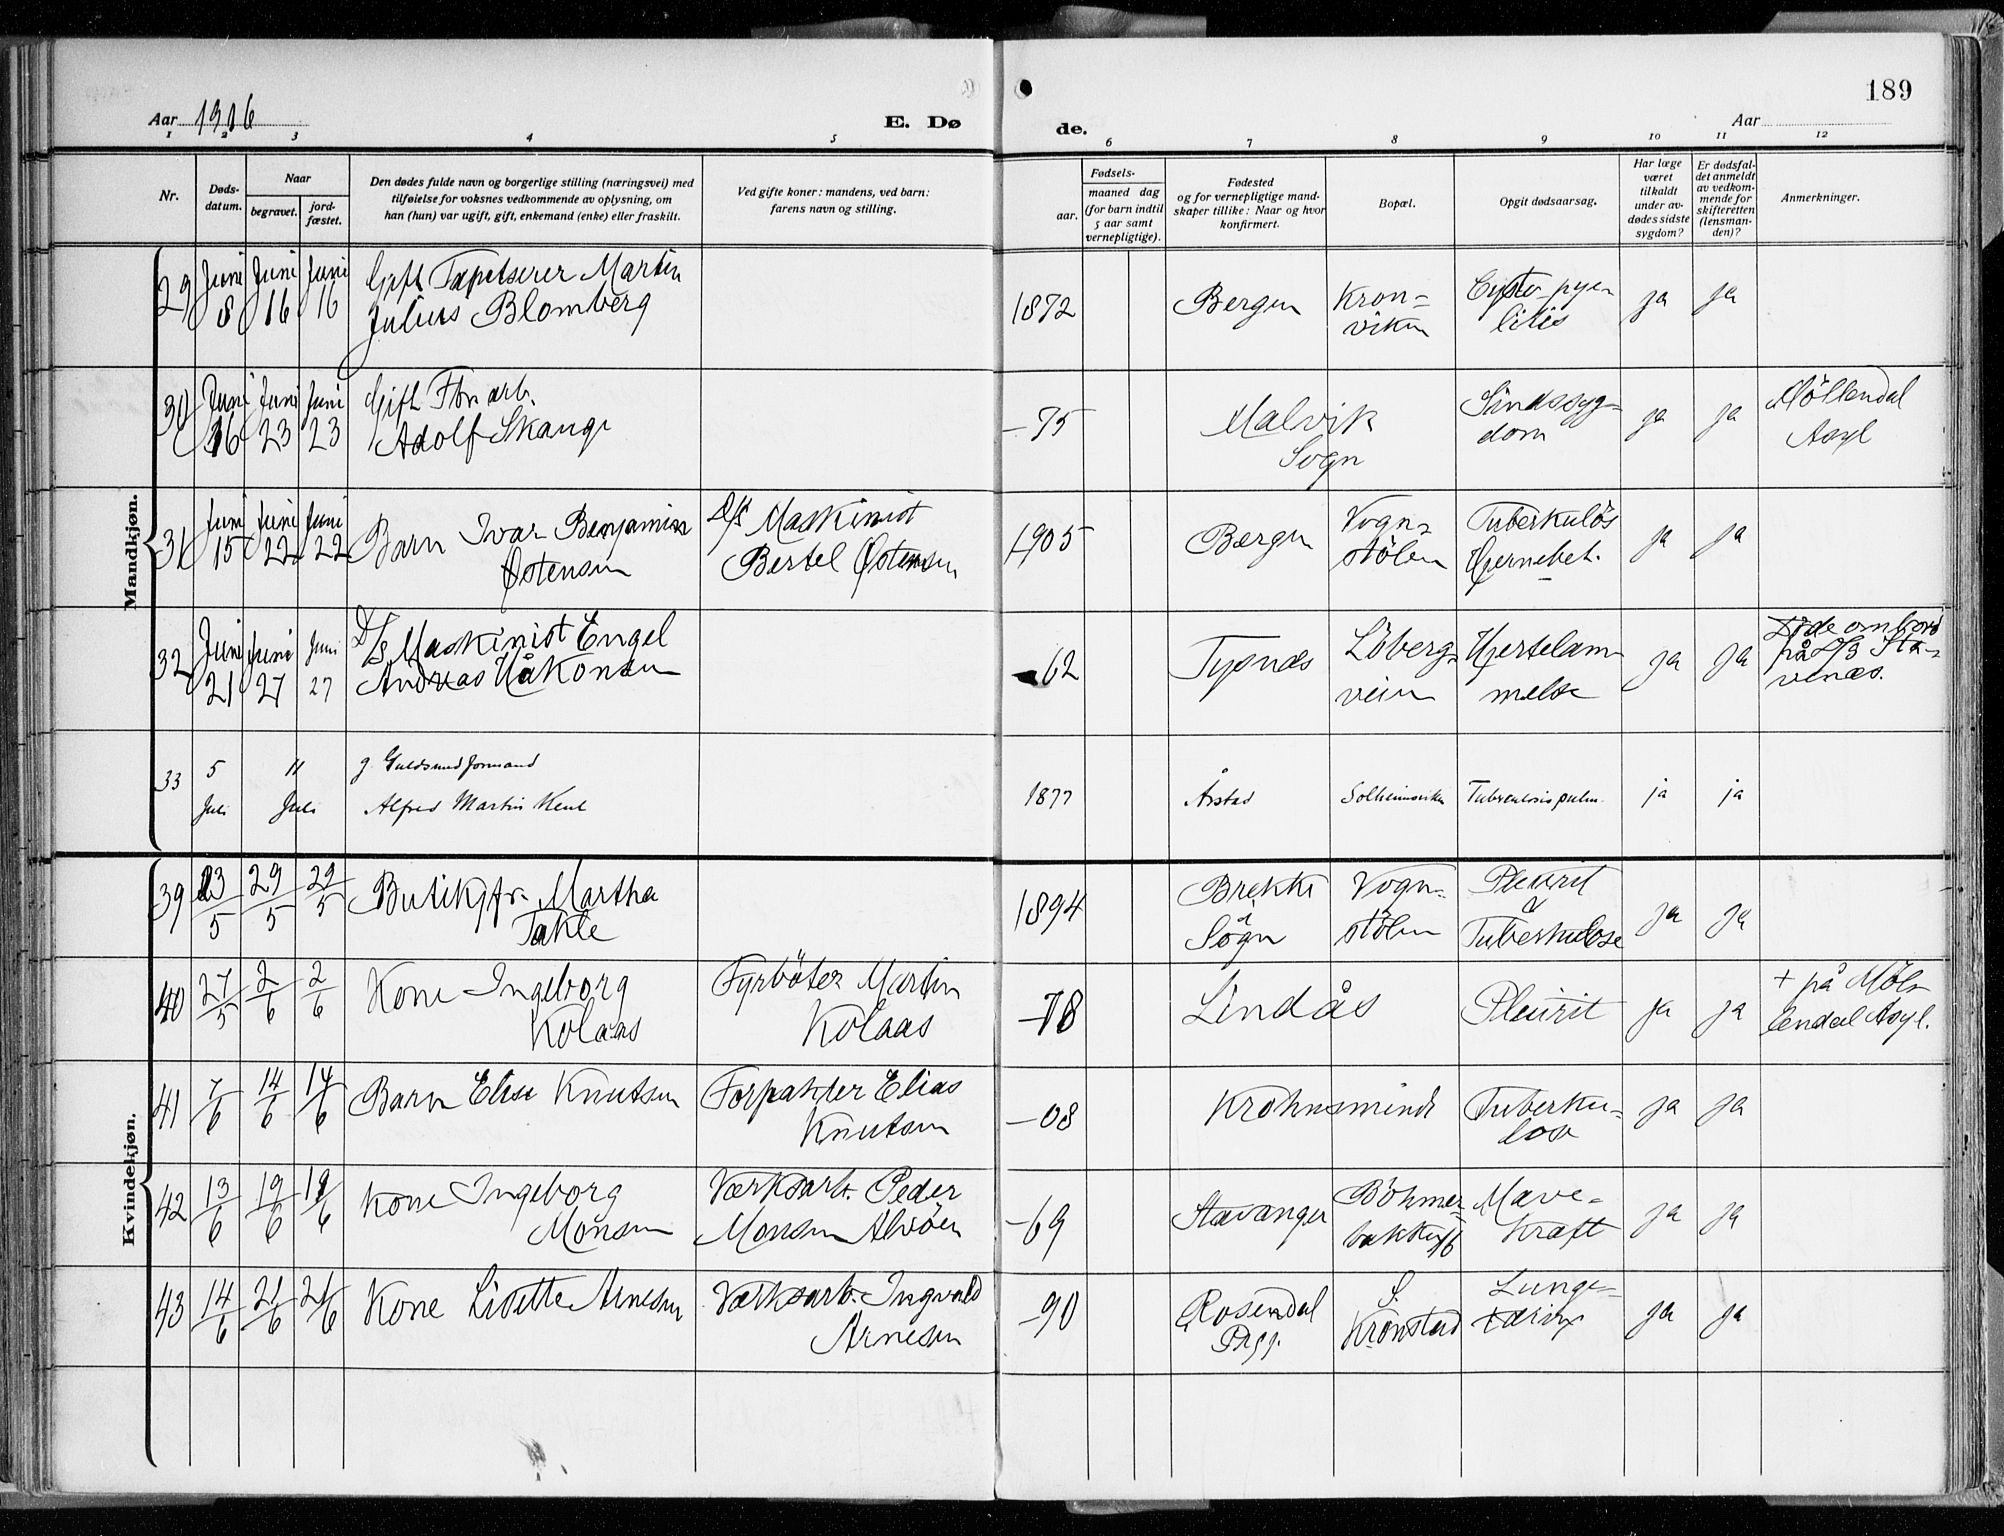 Aar 1916
E. Dø
de.
Aar
189
1 2 3 4 5 6 7 8 9 10 11 12
Nr.
Døds-
datum.
Naar
begravet.
jord-
fæstet.
Den dødes fulde navn og borgerlige stilling (næringsvei) med
tilføielse for voksnes vedkommende av oplysning, om
han (hun) var ugift, gift, enkemand (enke) eller fraskilt.
Ved gifte koner: mandens, ved barn:
farens navn og stilling.
Fødsels-
aar.
maaned dag
(for barn indtil
5 aar samt
vernepligtige).
Fødested
og for vernepligtige mand-
skaper tillike: Naar og hvor
konfirmert.
Bopæl.
Opgit dødsaarsag.
Har læge
været
tilkaldt
under av-
dødes sidste
sygdom?
Er dødsfal-
det anmeldt
av vedkom-
mende for
skifteretten
(lensman-
den)?
Anmerkninger.
Mandkjøn.
29 Juni Juni Juni Gift Tapetserer Martin
8 16 16 Julius Blomberg
1872 Bergen Kron-
viken
Cysto-pye-
litis
ja ja
30 Juni Juni Juni Gift
16 23 23 Adolf
-75 Malvik
Sogn
Sindssyg-
dom
ja ja
Möllendal
Asyl
31 Juni Juni Juni Barn Ivar Benjamin
15 22 22 Østensen
D/s Maskinist
Bertel Østensen
1905 Bergen Vogn-
stölen
Tuberkulös
Hjernebet.
ja ja
32 Juni Juni Juni D/s Maskinist Engel
21 27 27 Andreas Håkonsen
-62 Tysnes Löbergs
veien
Hjertelam-
melse
ja ja
Döde ombord
på D/S Sta-
venæs.
33 5 11 g. Guldsmedformand
Juli Juli Alfred Martin
1877 Årstad Solheimsviken Tuberculosis pulm. ja ja
Kvindekjøn.
39 23/5 29/5 29/5 Butikjfr. Martha
Takle
1894 Brekke
i
Sogn
Vogn-
stölen
Pleurit
&
Tuberkulose
ja ja
40 27/5 2/6 2/6 Kone Ingeborg
Kolaas
Fyrböter Martin
Kolaas
-78 Lindås Pleurit ja ja
+ på Möl-
lendal Asyl.
41 7/6 14/6 14/6 Barn Elise Knutsen
Forpakter Elias
Knutsen
-08 Krohnsminde Tuberku-
lose
ja ja
42 13/6 19/6 19/6 Kone Ingeborg
Monsen
Værksarb. Peder
Monsen Alvöen
-69 Stavanger Böhmer-
bakken
Mave-
kræft
ja ja
43 14/6 21/6 21/6 Kone Lisette Arnesen
Værksarb. Ingvald
Arnesen
-90 Rosendal
Prgj.
S.
Kronstad
Lunge-
tæring
ja ja